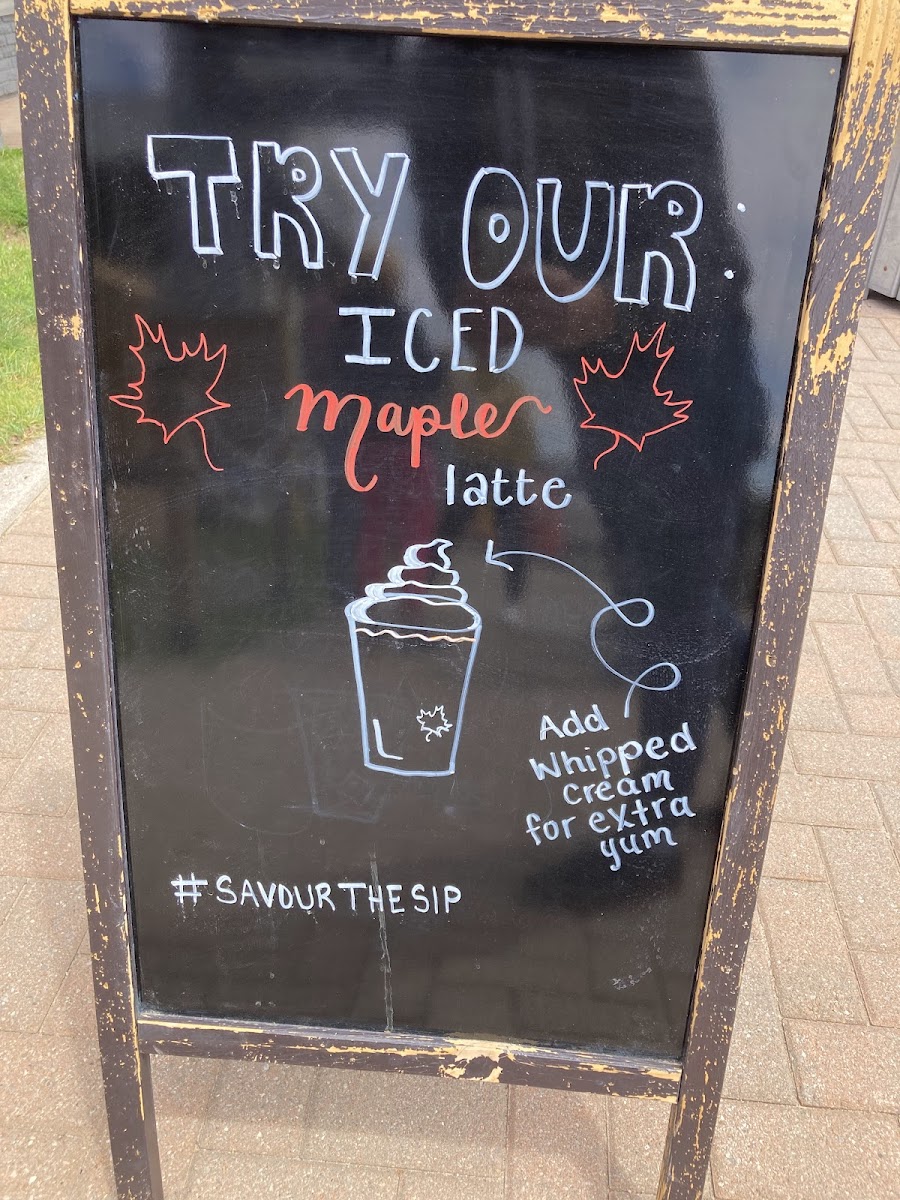 TRY OUR
ICED
maple
latte
Add
Whipped
cream
for extra
yum
#SAVOURTHESIP